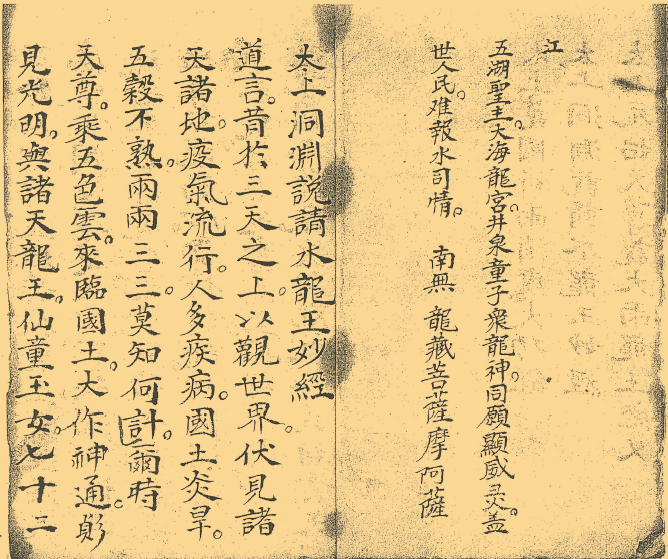 江
五湖聖主。大海龍宮井泉童子衆龍神。同願顯威灵。盖
世人民。难報水司情。 南無 龍藏菩薩摩阿薩
太上洞淵説請水龍王妙經
道言。昔於三天之上。以觀世界。伏見諸
天諸地。疫氣流行。人多疾病。國土炎旱。
五穀不熟。兩兩三三。莫知何計。爾時
天尊。乘五色雲。來臨國土。大作神通。
見光明。與諸天龍王。仙童玉女。七十三